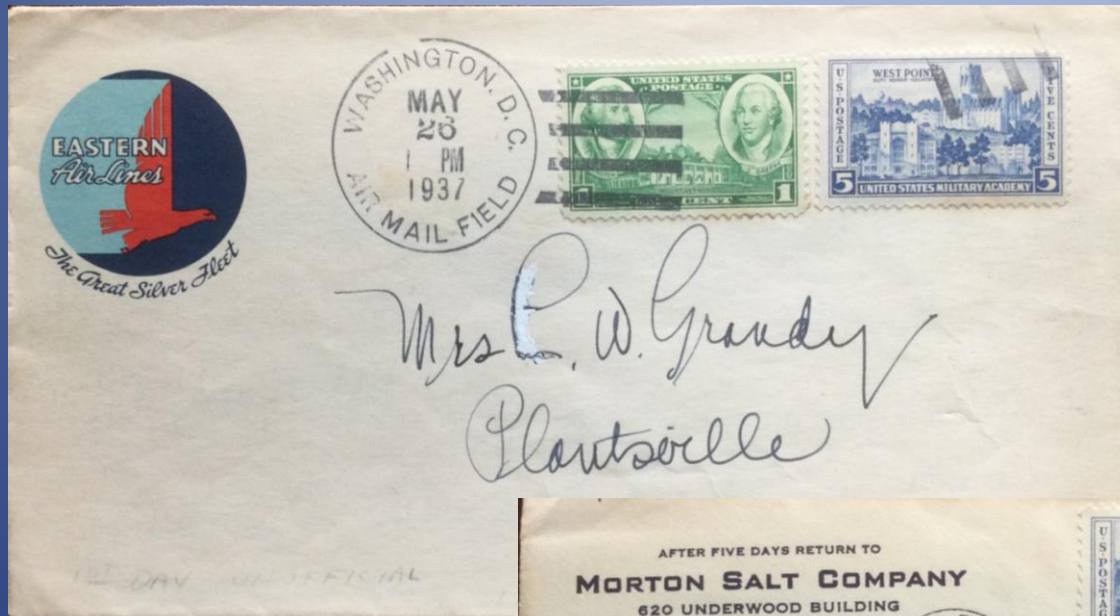 EASTERN
Air Lines
The Great Silver Fleet
WASHINGTON. D. C.
MAY
26
1 PM
1937
AIR MAIL FIELD
UNITED STATES
POSTAGE
1 CENT 1
WEST POINT
U·S·POSTAGE
FIVE CENTS
5 UNITED STATES MILITARY ACADEMY 5
Mrs C. W. Grandy
Plantsville
1ST DAY UNOFFICIAL
AFTER FIVE DAYS RETURN TO
MORTON SALT COMPANY
620 UNDERWOOD BUILDING
U·S·POSTAG